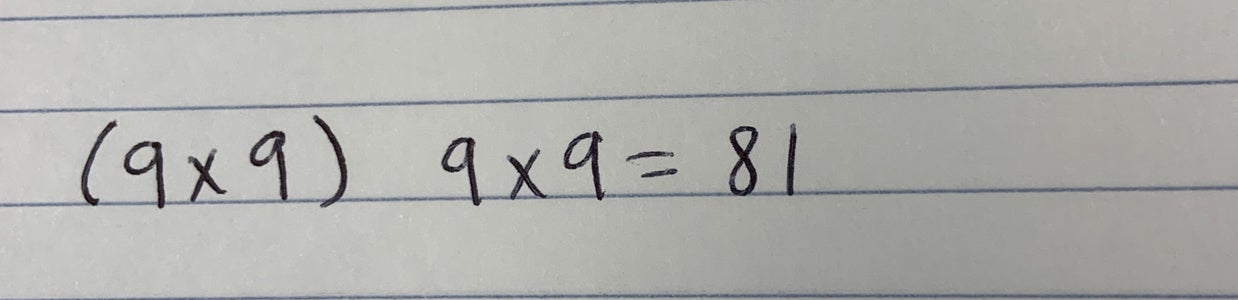 (9×9) 9×9=81